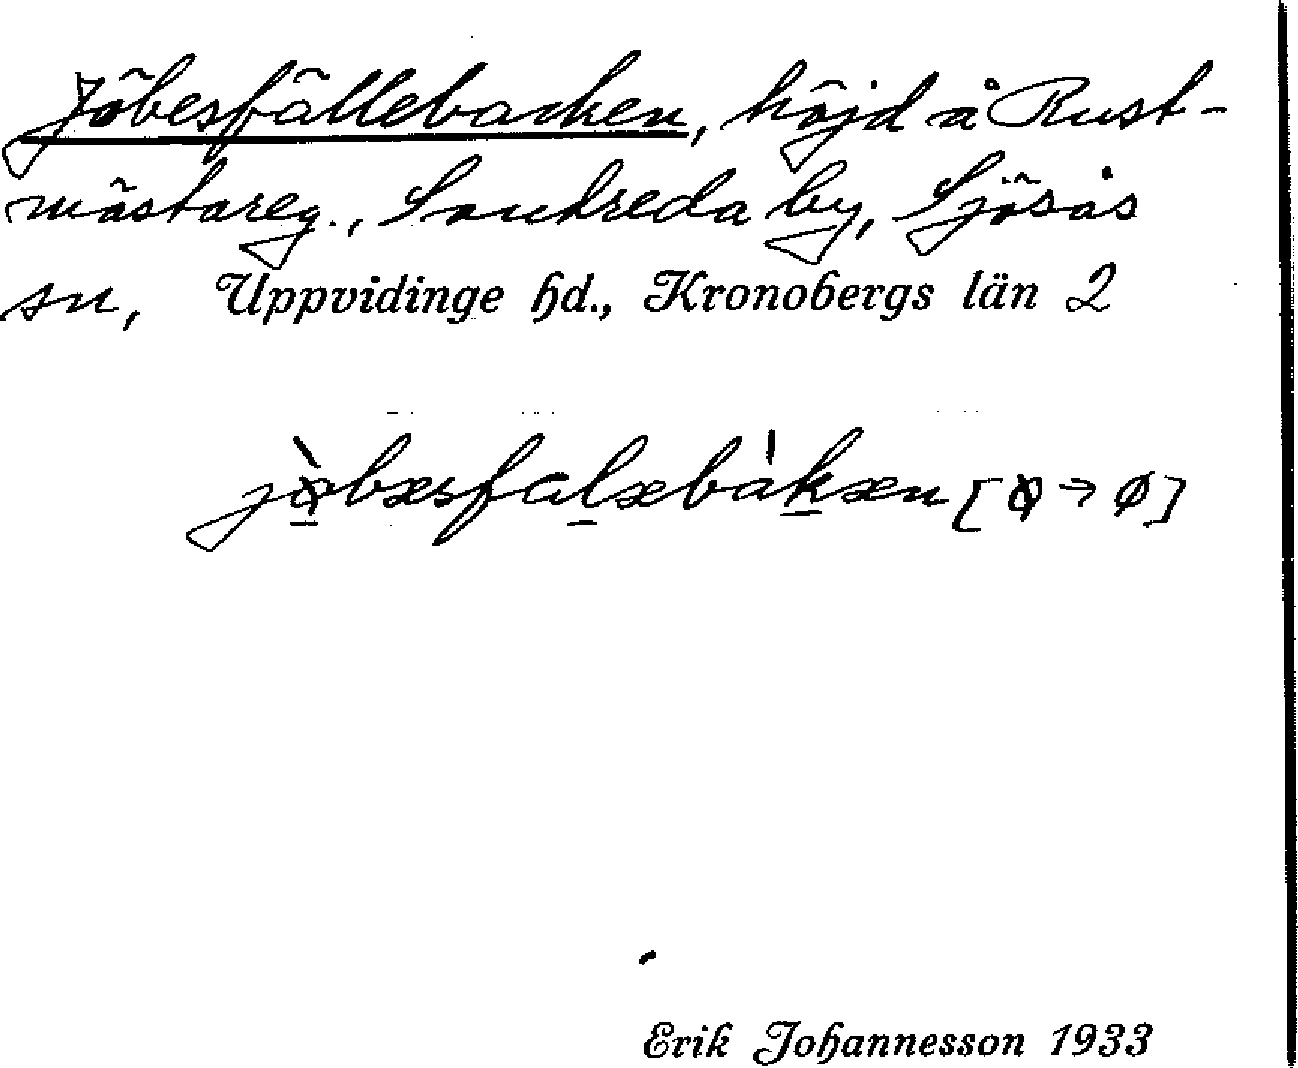 Jöbesfällebacken, höjd å Rust-
mästareg., Sankreda by, Sjösås
sn, Uppvidinge hd., Kronobergs län 2
Erik Johannesson 1933